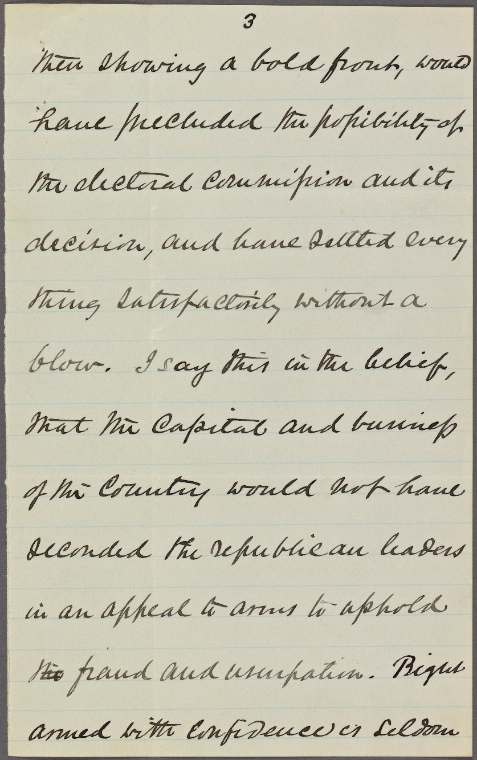 3
then showing a bold front, would
have precluded the possibility of
the electoral commission and its
decision, and have settled every
thing satisfactorily without a
blow. I say this in the belief,
that the Capital and business
of the Country would not have
seconded the republican leaders
in an appeal to arms to uphold
the fraud and usurpation. Right
armed with confidence is seldom